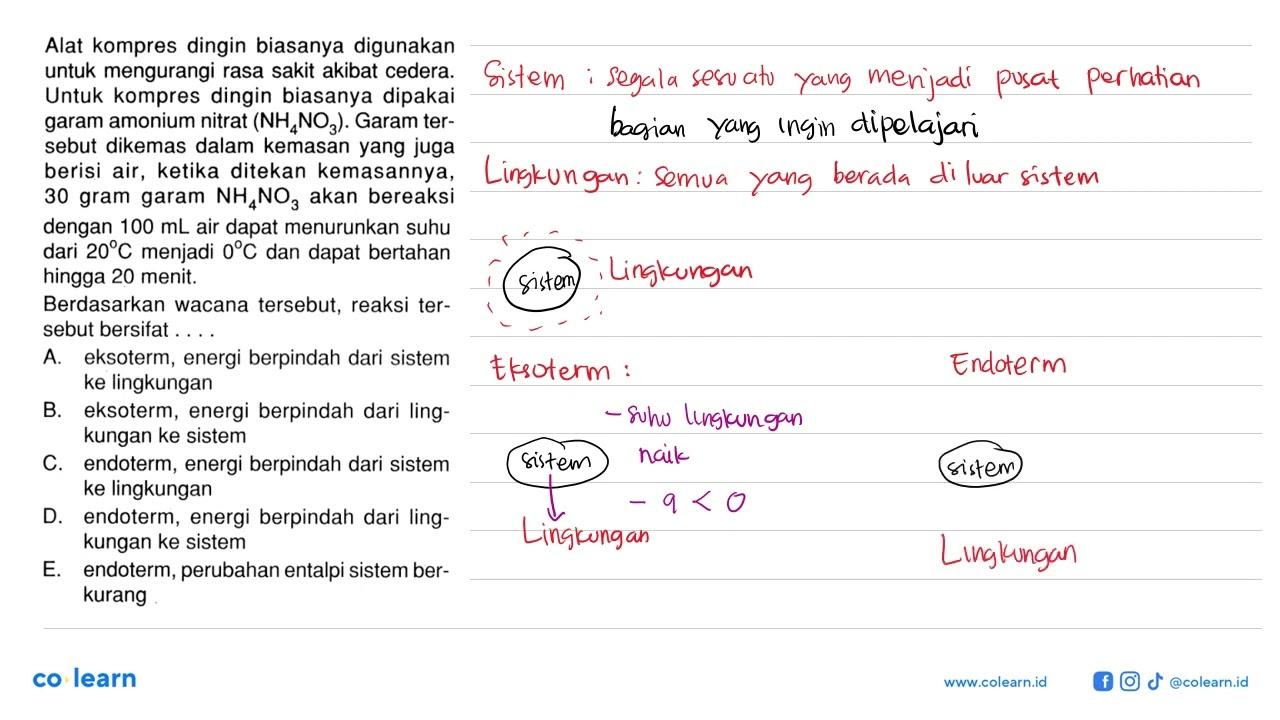 Alat kompres dingin biasanya digunakan
untuk mengurangi rasa sakit akibat cedera.
Untuk kompres dingin biasanya dipakai
garam amonium nitrat (NH₄NO₃). Garam ter-
sebut dikemas dalam kemasan yang juga
berisi air, ketika ditekan kemasannya,
30 gram garam NH₄NO₃ akan bereaksi
dengan 100 mL air dapat menurunkan suhu
dari 20°C menjadi 0°C dan dapat bertahan
hingga 20 menit.
Berdasarkan wacana tersebut, reaksi ter-
sebut bersifat . . . .
A. eksoterm, energi berpindah dari sistem
ke lingkungan
B. eksoterm, energi berpindah dari ling-
kungan ke sistem
C. endoterm, energi berpindah dari sistem
ke lingkungan
D. endoterm, energi berpindah dari ling-
kungan ke sistem
E. endoterm, perubahan entalpi sistem ber-
kurang
Sistem : segala sesuatu yang menjadi pusat perhatian
bagian yang ingin dipelajari
Lingkungan : semua yang berada di luar sistem
sistem
Lingkungan
Eksoterm :
- suhu lingkungan
naik
sistem
- q < 0
Lingkungan
Endoterm
sistem
Lingkungan
co learn
www.colearn.id
@colearn.id